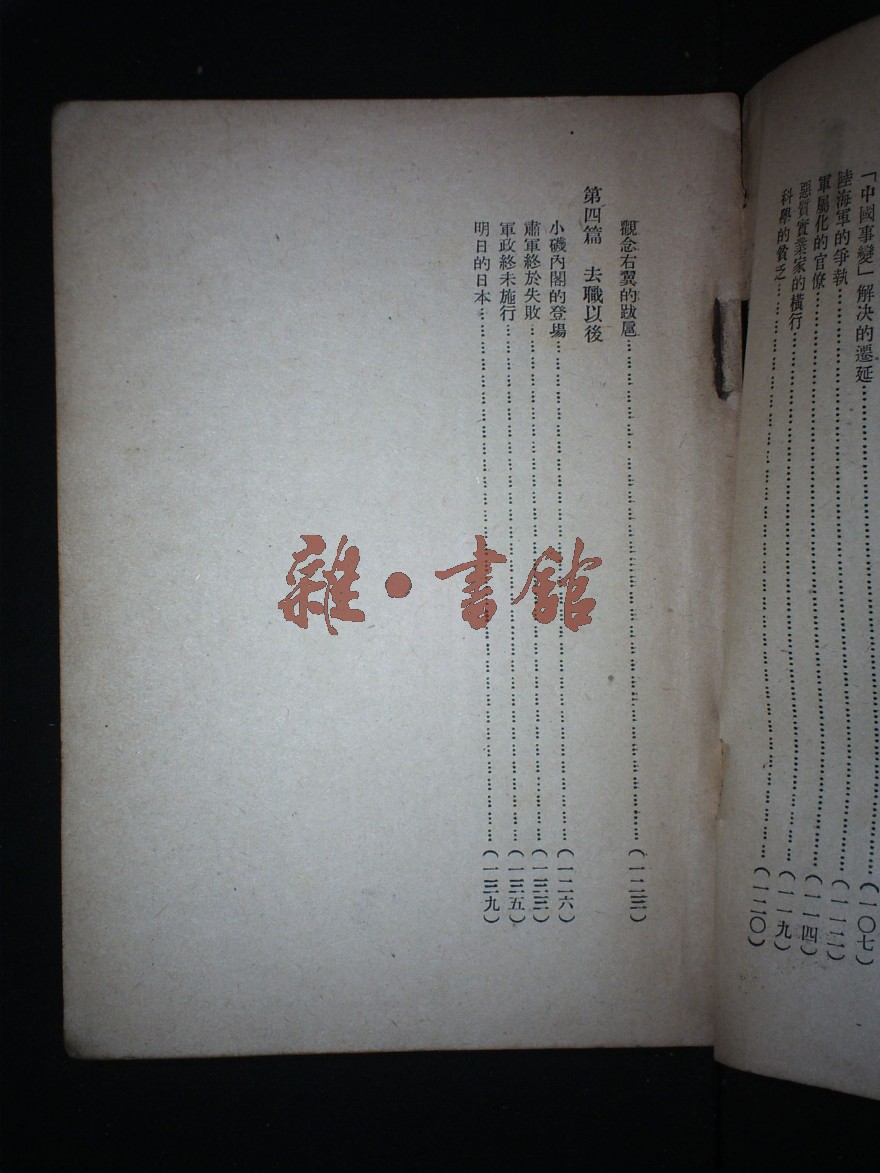 「中國事變」解决的遷延……(一〇七)
陸海軍的爭執……(一一二)
軍屬化的官僚……(一一四)
惡質實業家的橫行……(一一九)
科學的貧乏……(一二〇)
觀念右翼的跋扈……(一二三)
第四篇 去職以後
小磯內閣的登場……(一二六)
肅軍終於失敗……(一三三)
軍政終未施行……(一三五)
明日的日本……(一三九)
雜·書館